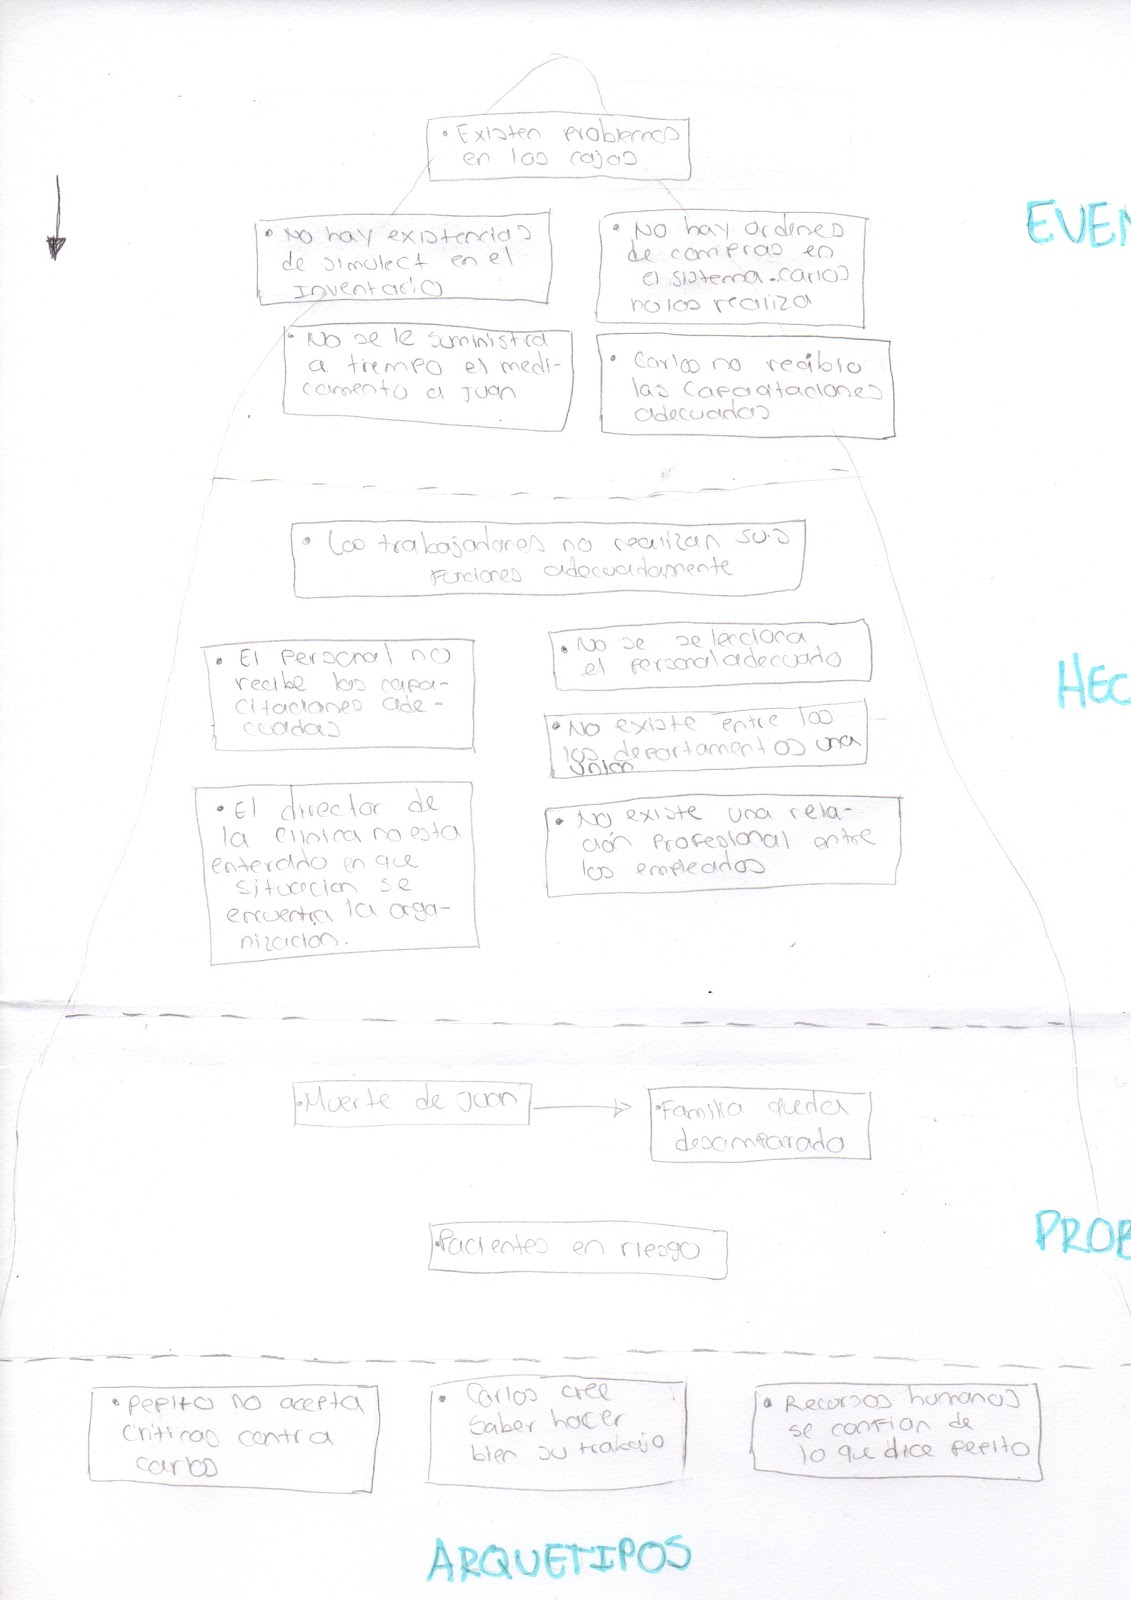 • Existen problemas
en las cajas
EVEN
• No hay existencias
de simulect en el
Inventario
• No hay ordenes
de compras en
el sistema. Carlos
no las realiza
• No se le suministra
a tiempo el medi-
camento a Juan
• Carlos no recibio
las capacitaciones
adecuadas
• Los trabajadores no realizan sus
funciones adecuadamente
HEC
• El personal no
recibe las capa-
citaciones ade-
cuadas
• No se selecciona
el personal adecuado
• No existe entre los
los departamentos una
unión
• El director de
la clinica no esta
enterado en que
situacion se
encuentra la orga-
nización.
• No existe una rela-
ción profesional entre
los empleados
• Muerte de Juan
• Familia queda
desamparada
• Pacientes en riesgo
PROB
• Pepito no acepta
criticas contra
Carlos
• Carlos cree
saber hacer
bien su trabajo
• Recursos humanos
se confian de
lo que dice Pepito
ARQUETIPOS